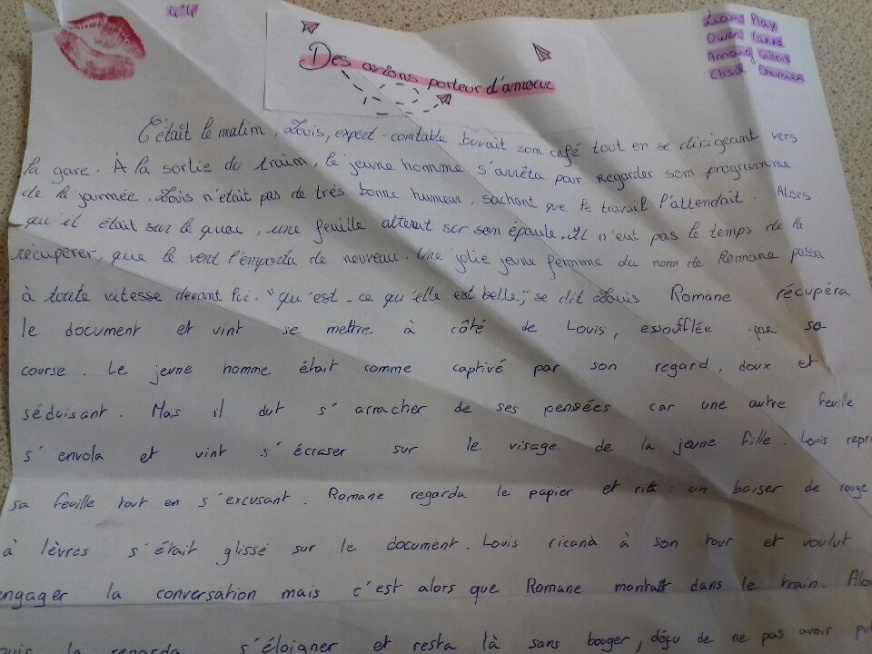 Des avions porteur d'amour
C'était le matin, Louis, expert-comtable buvait son café tout en se dirigeant vers
la gare. À la sortie du train, le jeune homme s'arrêta pour regarder son programme
de la journée. Louis n'était pas de très bonne humeur, sachant que le travail l'attendait. Alors
qu'il était sur le quai, une feuille atterrit sur son épaule. Il n'eut pas le temps de la
récupérer, que le vent l'emporta de nouveau. Une jolie jeune femme du nom de Romane passa
à toute vitesse devant lui. "qu'est-ce qu'elle est belle," se dit Louis Romane récupéra
le document et vint se mettre à côté de Louis, essoufflée par sa
course. Le jeune homme était comme captivé par son regard, doux et
séduisant. Mais il dut s'arracher de ses pensées car une autre feuille
s'envola et vint s'écraser sur le visage de la jeune fille. Louis repri
sa feuille tout en s'excusant. Romane regarda le papier et rit : un baiser de rouge
à lèvres s'était glissé sur le document. Louis ricana à son tour et voulut
engager la conversation mais c'est alors que Romane montait dans le train. Alo
la regarda s'éloigner et resta là sans bouger, déçu de ne pas avoir pu